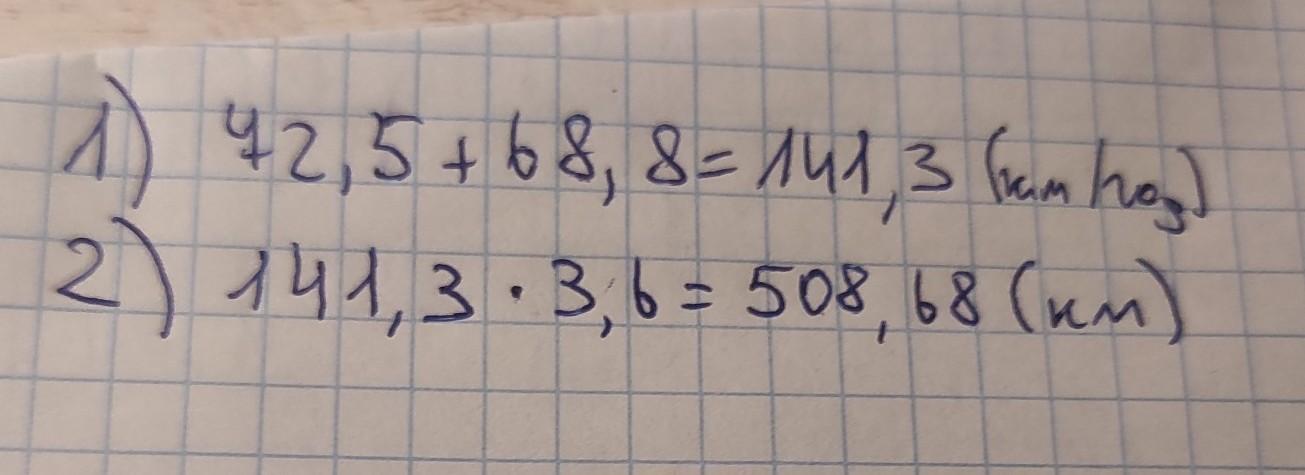 1) 72,5 + 68,8 = 141,3 (км/год)
2) 141,3 · 3,6 = 508,68 (км)